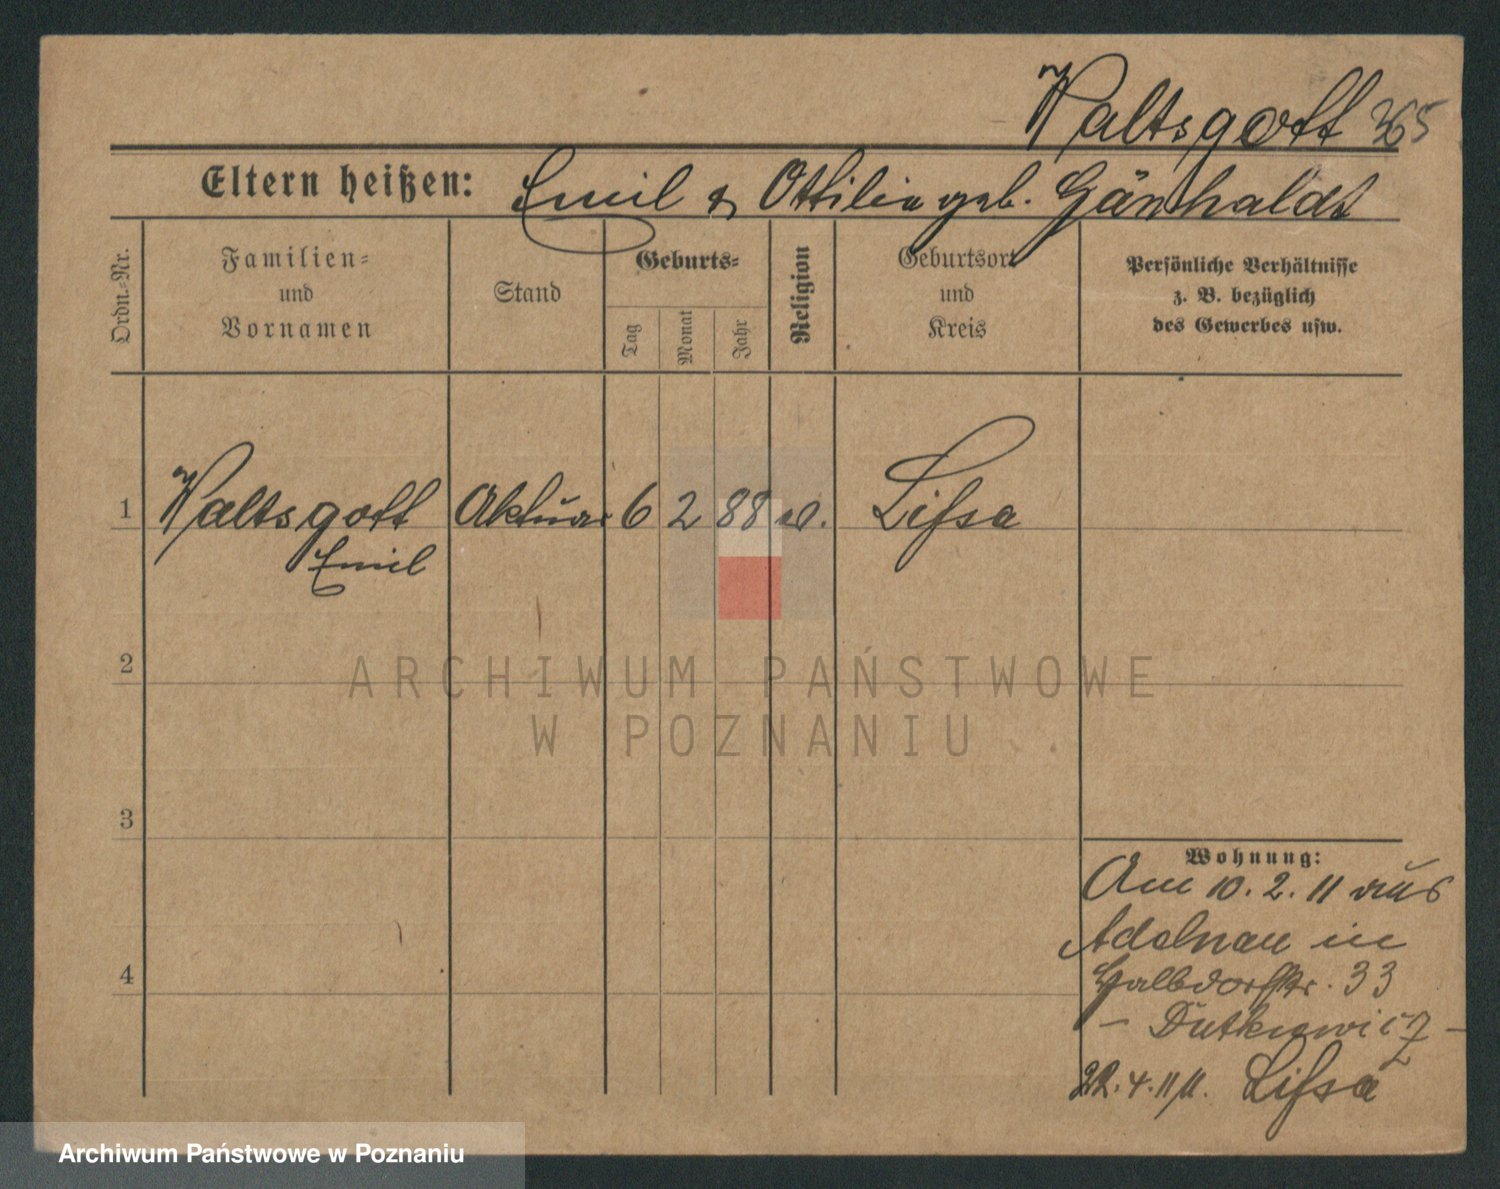 Waltsgott 365
Eltern heißen: Emil & Ottilia geb. Gänshaldt
Ordn.-Nr.
Familien-
und
Vornamen
Stand
Geburts-
Tag
Monat
Jahr
Religion
Geburtsort
und
Kreis
Persönliche Verhältnisse
z. B. bezüglich
des Gewerbes usw.
1 Waltsgott Aktuar 6 2 88 ev. Lissa
Emil
2
3
4
Wohnung:
Am 10. 2. 11 aus
Adelnau in
Halbdorfstr. 33
- Dutkiewicz -
22. 4. 11 Lissa
ARCHIWUM PAŃSTWOWE
W POZNANIU
Archiwum Państwowe w Poznaniu